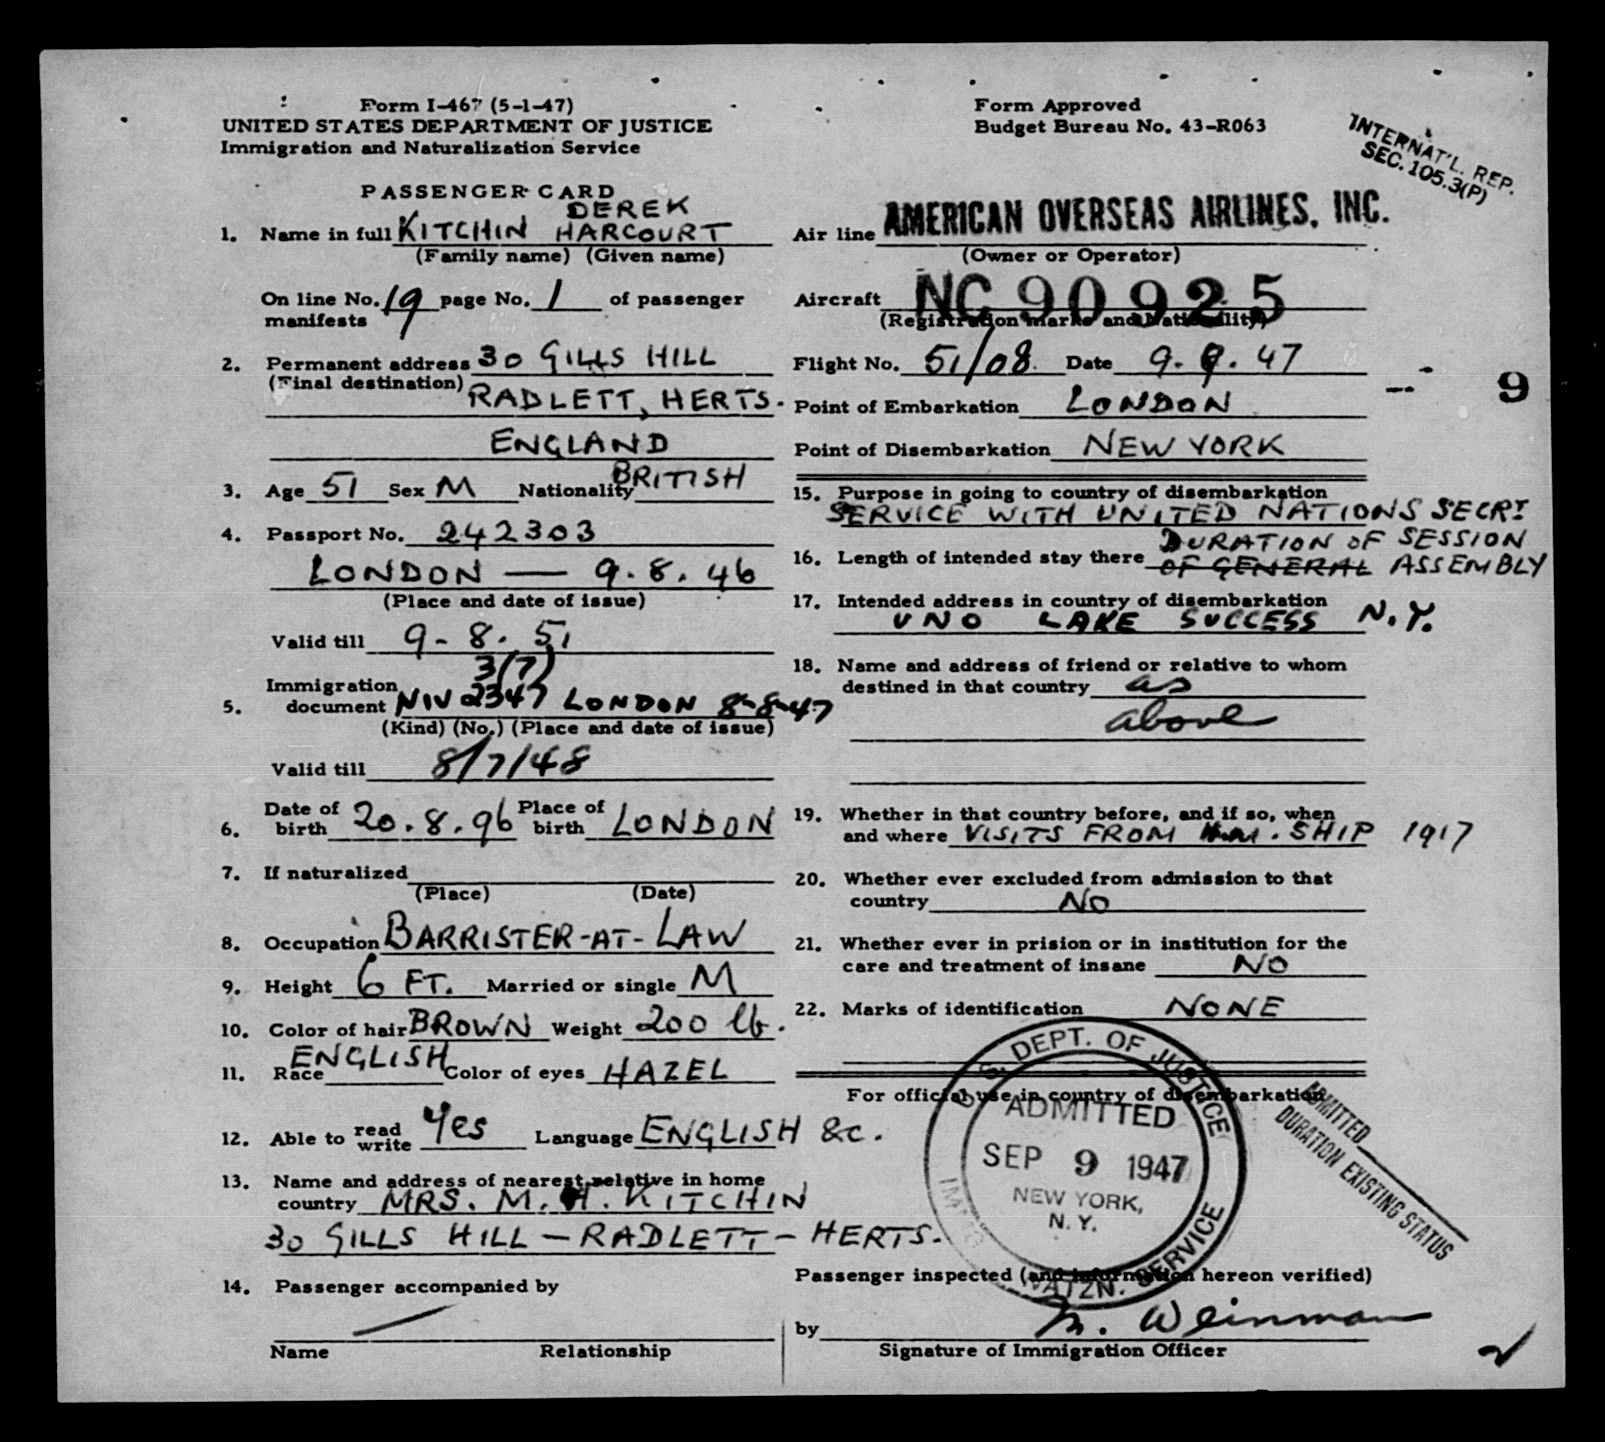 Form I-467 (5-1-47)
UNITED STATES DEPARTMENT OF JUSTICE
Immigration and Naturalization Service
PASSENGER CARD
1. Name in full KITCHIN DEREK HARCOURT
(Family name) (Given name)
On line No. 19 page No. 1 of passenger
manifests
2. Permanent address 30 GILLS HILL
(Final destination) RADLETT, HERTS.
ENGLAND
3. Age 51 Sex M Nationality BRITISH
4. Passport No. 242303
LONDON — 9.8.46
(Place and date of issue)
Valid till 9-8.51
3(7)
Immigration
5. document NIV 2347 LONDON 8-8-47
(Kind) (No.) (Place and date of issue)
Valid till 8/7/48
6. Date of birth 20.8.96 Place of birth LONDON
7. If naturalized
(Place) (Date)
8. Occupation BARRISTER-AT-LAW
9. Height 6 FT. Married or single M
10. Color of hair BROWN Weight 200 lb.
11. Race ENGLISH Color of eyes HAZEL
12. Able to read write Yes Language ENGLISH &c.
13. Name and address of nearest relative in home
country MRS. M. H. KITCHIN
30 GILLS HILL — RADLETT — HERTS.
14. Passenger accompanied by
Name Relationship
Form Approved
Budget Bureau No. 43-R063
INTERNAT'L. REP.
SEC. 105.3(P)
Air line AMERICAN OVERSEAS AIRLINES, INC.
(Owner or Operator)
Aircraft NC 90925
(Registration marks and Nationality)
Flight No. 51/08 Date 9.9.47
9
Point of Embarkation LONDON
Point of Disembarkation NEW YORK
15. Purpose in going to country of disembarkation
SERVICE WITH UNITED NATIONS SECRT
16. Length of intended stay there DURATION OF SESSION
OF GENERAL ASSEMBLY
17. Intended address in country of disembarkation
UNO LAKE SUCCESS N.Y.
18. Name and address of friend or relative to whom
destined in that country as
above
19. Whether in that country before, and if so, when
and where VISITS FROM H.M. SHIP 1917
20. Whether ever excluded from admission to that
country NO
21. Whether ever in prision or in institution for the
care and treatment of insane NO
22. Marks of identification NONE
For official use in country of disembarkation
U. S. DEPT. OF JUSTICE
ADMITTED
SEP 9 1947
NEW YORK,
N. Y.
IMMIG NATZN. SERVICE
ADMITTED
DURATION EXISTING STATUS
Passenger inspected (and information hereon verified)
by M. Weinman
Signature of Immigration Officer